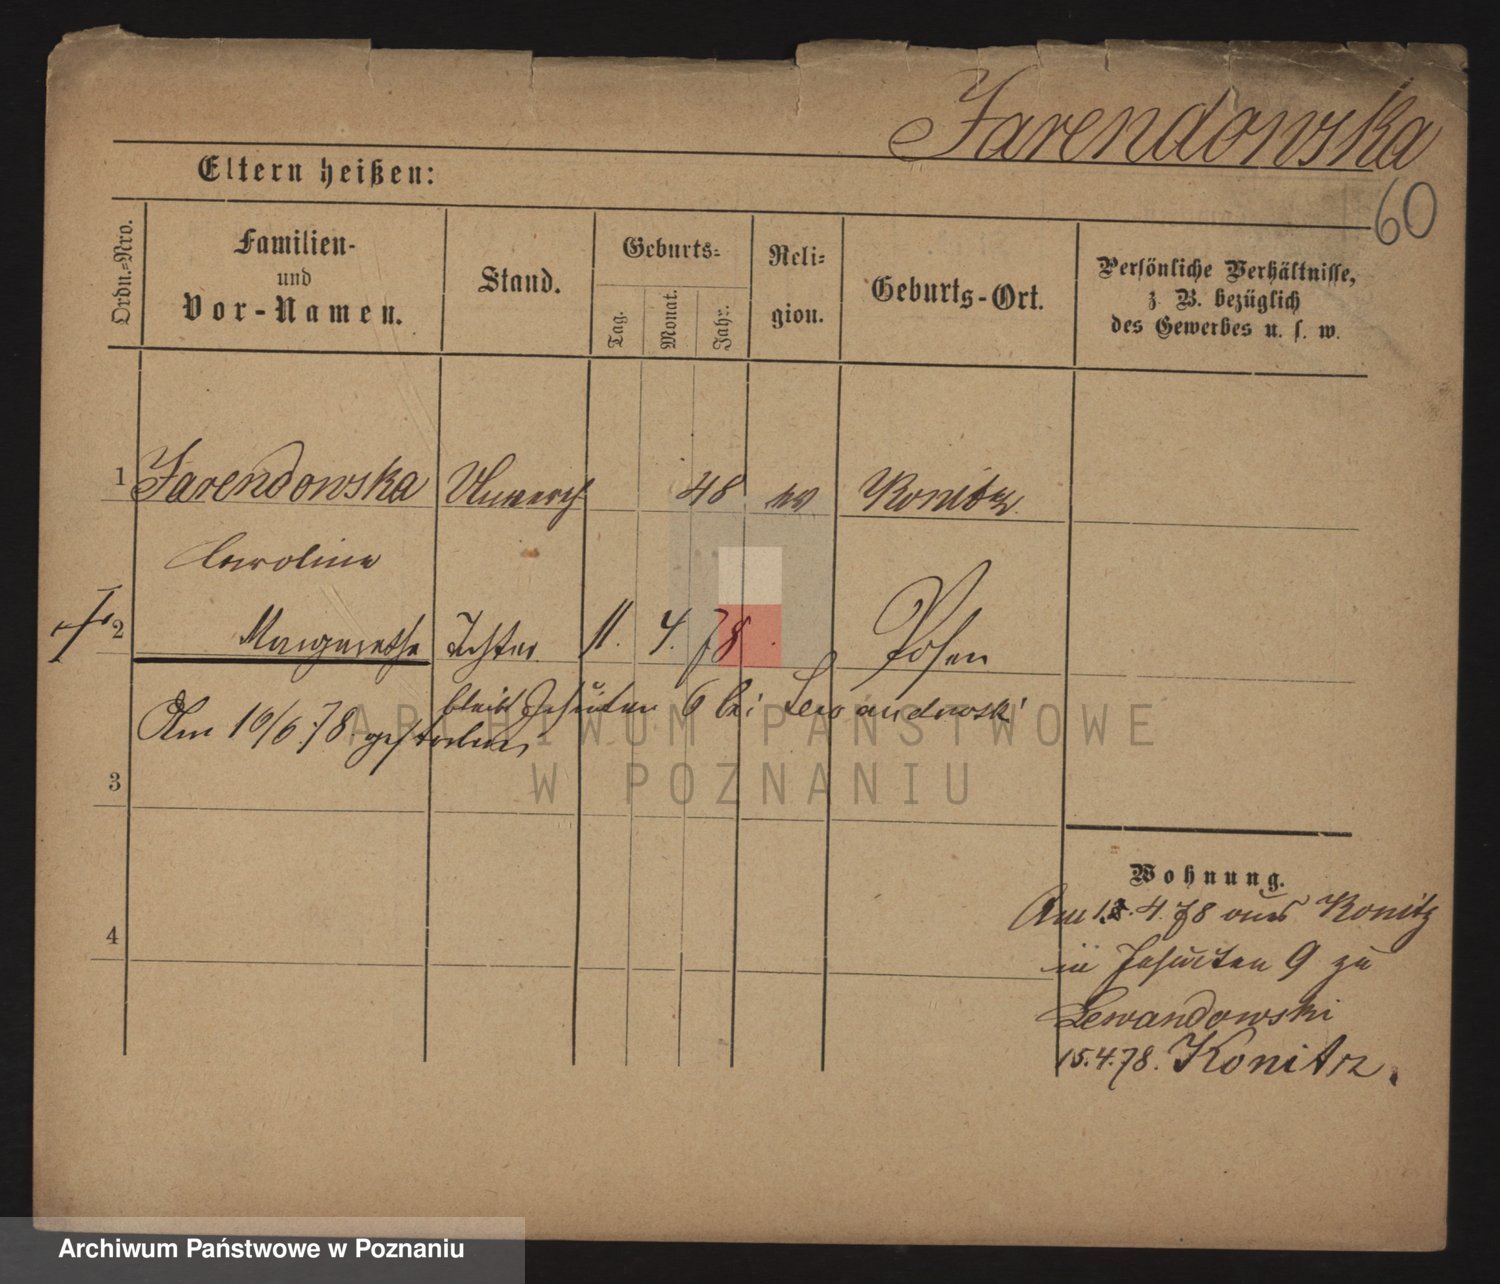 Jarendowska
60
Eltern heißen:
Ordn.=Nro.
Familien-
und
Vor-Namen.
Stand.
Geburts=
Tag.
Monat.
Jahr.
Reli=
gion.
Geburts-Ort.
Persönliche Verhältnisse,
z. B. bezüglich
des Gewerbes u. s. w.
1 Jarendowska Unvereh 48 ev Konitz
Caroline
2 Margarethe Tchter 11. 4. 78. Posen
bleibt Jesuiten 6 bei Lewandowski
Am 16/6.78 gestorben
3
4
Wohnung.
Am 4.78 aus Konitz
in Jesuiten 9 zu
Lewandowski
15.4.78. Konitz.
ARCHIWUM PAŃSTWOWE
W POZNANIU
Archiwum Państwowe w Poznaniu